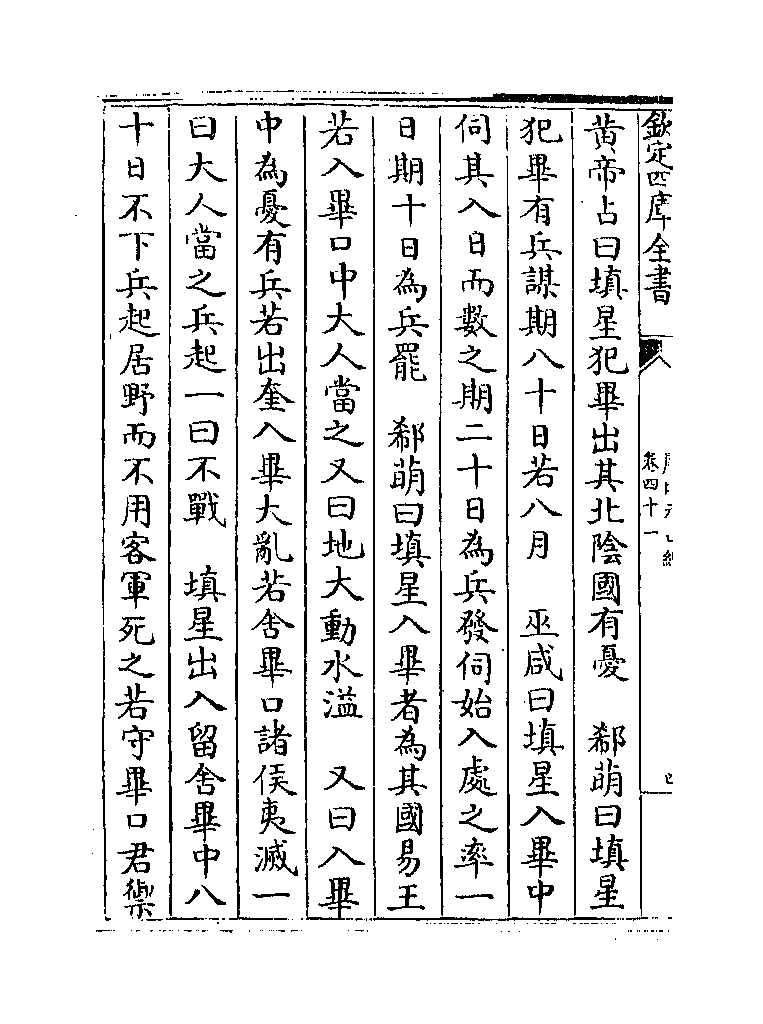 欽定四庫全書
卷四十一
黄帝占曰填星犯畢出其北陰國有憂　郗萌曰填星
犯畢有兵謀期八十日若八月　巫咸曰填星入畢中
伺其入日而數之期二十日為兵發伺始入處之率一
日期十日為兵罷　郗萌曰填星入畢者為其國易王
若入畢口中大人當之又曰地大動水溢　又曰入畢
中為憂有兵若出奎入畢大亂若舍畢口諸侯夷滅一
曰大人當之兵起一曰不戰　填星出入留舍畢中八
十日不下兵起居野而不用客軍死之若守畢口君禦